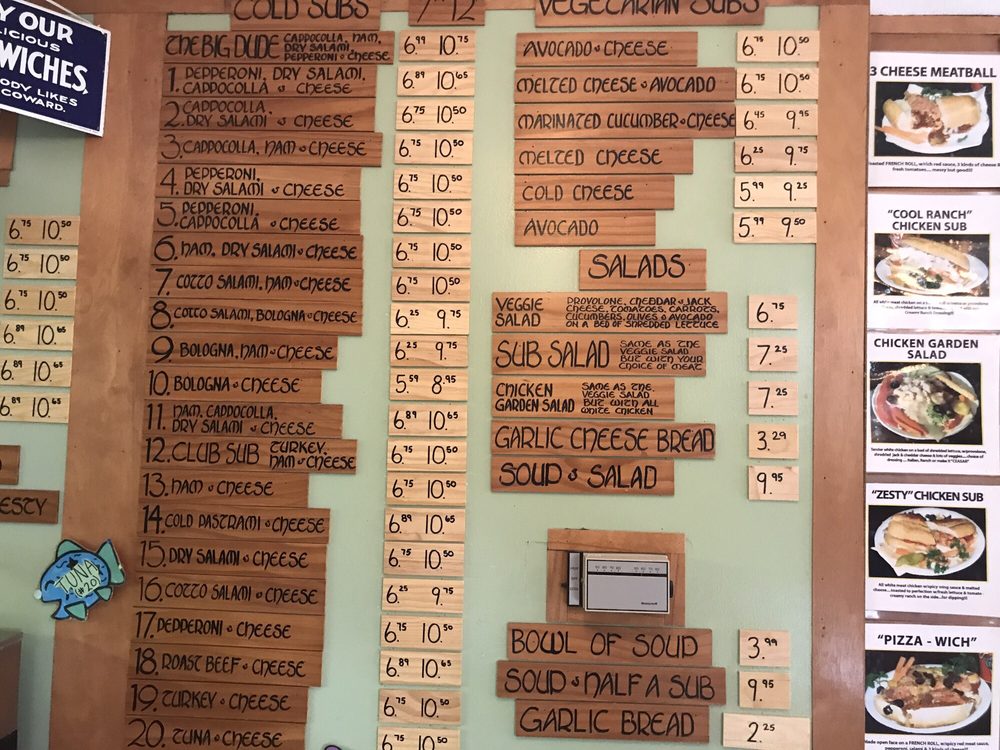 Y OUR
LICIOUS
WICHES,
ODY LIKES
COWARD.
6.75 10.50
6.75 10.50
6.75 10.50
6.89 10.65
6.89 10.65
6.89 10.65
ESTY
TUNA
#20!
COLD SUBS 7" 12
THE BIG DUDE CAPPOCOLLA, HAM, DRY SALAMI, PEPPERONI & CHEESE 6.99 10.75
1. PEPPERONI, DRY SALAMI, CAPPOCOLLA & CHEESE 6.89 10.65
2. CAPPOCOLLA, DRY SALAMI & CHEESE 6.75 10.50
3. CAPPOCOLLA, HAM & CHEESE 6.75 10.50
4. PEPPERONI, DRY SALAMI & CHEESE 6.75 10.50
5. PEPPERONI, CAPPOCOLLA & CHEESE 6.75 10.50
6. HAM, DRY SALAMI & CHEESE 6.75 10.50
7. COTTO SALAMI, HAM & CHEESE 6.75 10.50
8. COTTO SALAMI, BOLOGNA & CHEESE 6.25 9.75
9. BOLOGNA, HAM & CHEESE 6.25 9.75
10. BOLOGNA & CHEESE 5.59 8.95
11. HAM, CAPPOCOLLA, DRY SALAMI & CHEESE 6.89 10.65
12. CLUB SUB TURKEY, HAM & CHEESE 6.75 10.50
13. HAM & CHEESE 6.75 10.50
14. COLD PASTRAMI & CHEESE 6.89 10.65
15. DRY SALAMI & CHEESE 6.75 10.50
16. COTTO SALAMI & CHEESE 6.25 9.75
17. PEPPERONI & CHEESE 6.75 10.50
18. ROAST BEEF & CHEESE 6.89 10.65
19. TURKEY & CHEESE 6.75 10.50
20. TUNA & CHEESE 6.75 10.50
VEGETARIAN SUBS
AVOCADO & CHEESE 6.75 10.50
MELTED CHEESE & AVOCADO 6.75 10.50
MARINATED CUCUMBER & CHEESE 6.45 9.95
MELTED CHEESE 6.25 9.75
COLD CHEESE 5.99 9.25
AVOCADO 5.99 9.50
SALADS
VEGGIE SALAD PROVOLONE, CHEDDAR & JACK CHEESE, TOMATOES, CARROTS, CUCUMBERS, OLIVES & AVOCADO ON A BED OF SHREDDED LETTUCE 6.75
SUB SALAD SAME AS THE VEGGIE SALAD BUT WITH YOUR CHOICE OF MEAT 7.25
CHICKEN GARDEN SALAD SAME AS THE VEGGIE SALAD BUT WITH ALL WHITE CHICKEN 7.25
GARLIC CHEESE BREAD 3.29
SOUP & SALAD 9.95
BOWL OF SOUP 3.99
SOUP & HALF A SUB 9.95
GARLIC BREAD 2.25
3 CHEESE MEATBALL
toasted FRENCH ROLL, which red sauce, 3 kinds of cheese
fresh tomatoes.... messy but good!!!
"COOL RANCH"
CHICKEN SUB
Creamy Ranch Dressing!!!
CHICKEN GARDEN
SALAD
Tender white chicken on a bed of shredded lettuce, w/provolone,
shredded jack & cheddar cheese & lots of veggies....choice of
dressing ... Italian, Ranch or make it "CEASAR"
"ZESTY" CHICKEN SUB
All white meat chicken w/spicy wing sauce & melted
cheese....toasted to perfection w/fresh lettuce & tomato -
creamy ranch on the side...for dipping!!!
"PIZZA - WICH"
Made open face on a FRENCH ROLL, w/spicy red meat sauce,